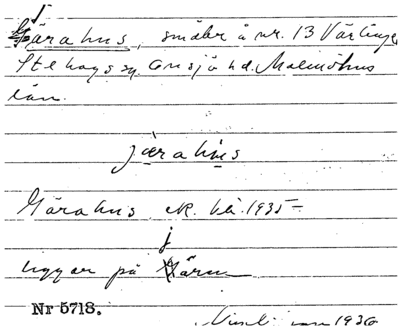 Järahus, småbr å nr. 13 Värlinge,
Stehags sn. Onsjö hd. Malmöhus
län.
järahus
Gärahus ek. bl. 1935
j
ligger på Järan
Nr 5718.
1936